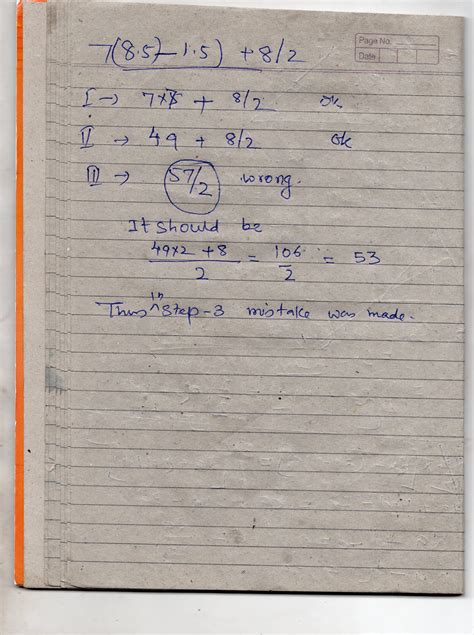 Page No.
Date
7(8.5)-1.5) + 8/2
I → 7x7 + 8/2 ok
II → 49 + 8/2 ok
III → 57/2 wrong.
It should be
49x2 + 8 / 2 = 106 / 2 = 53
Thus in step-3 mistake was made.